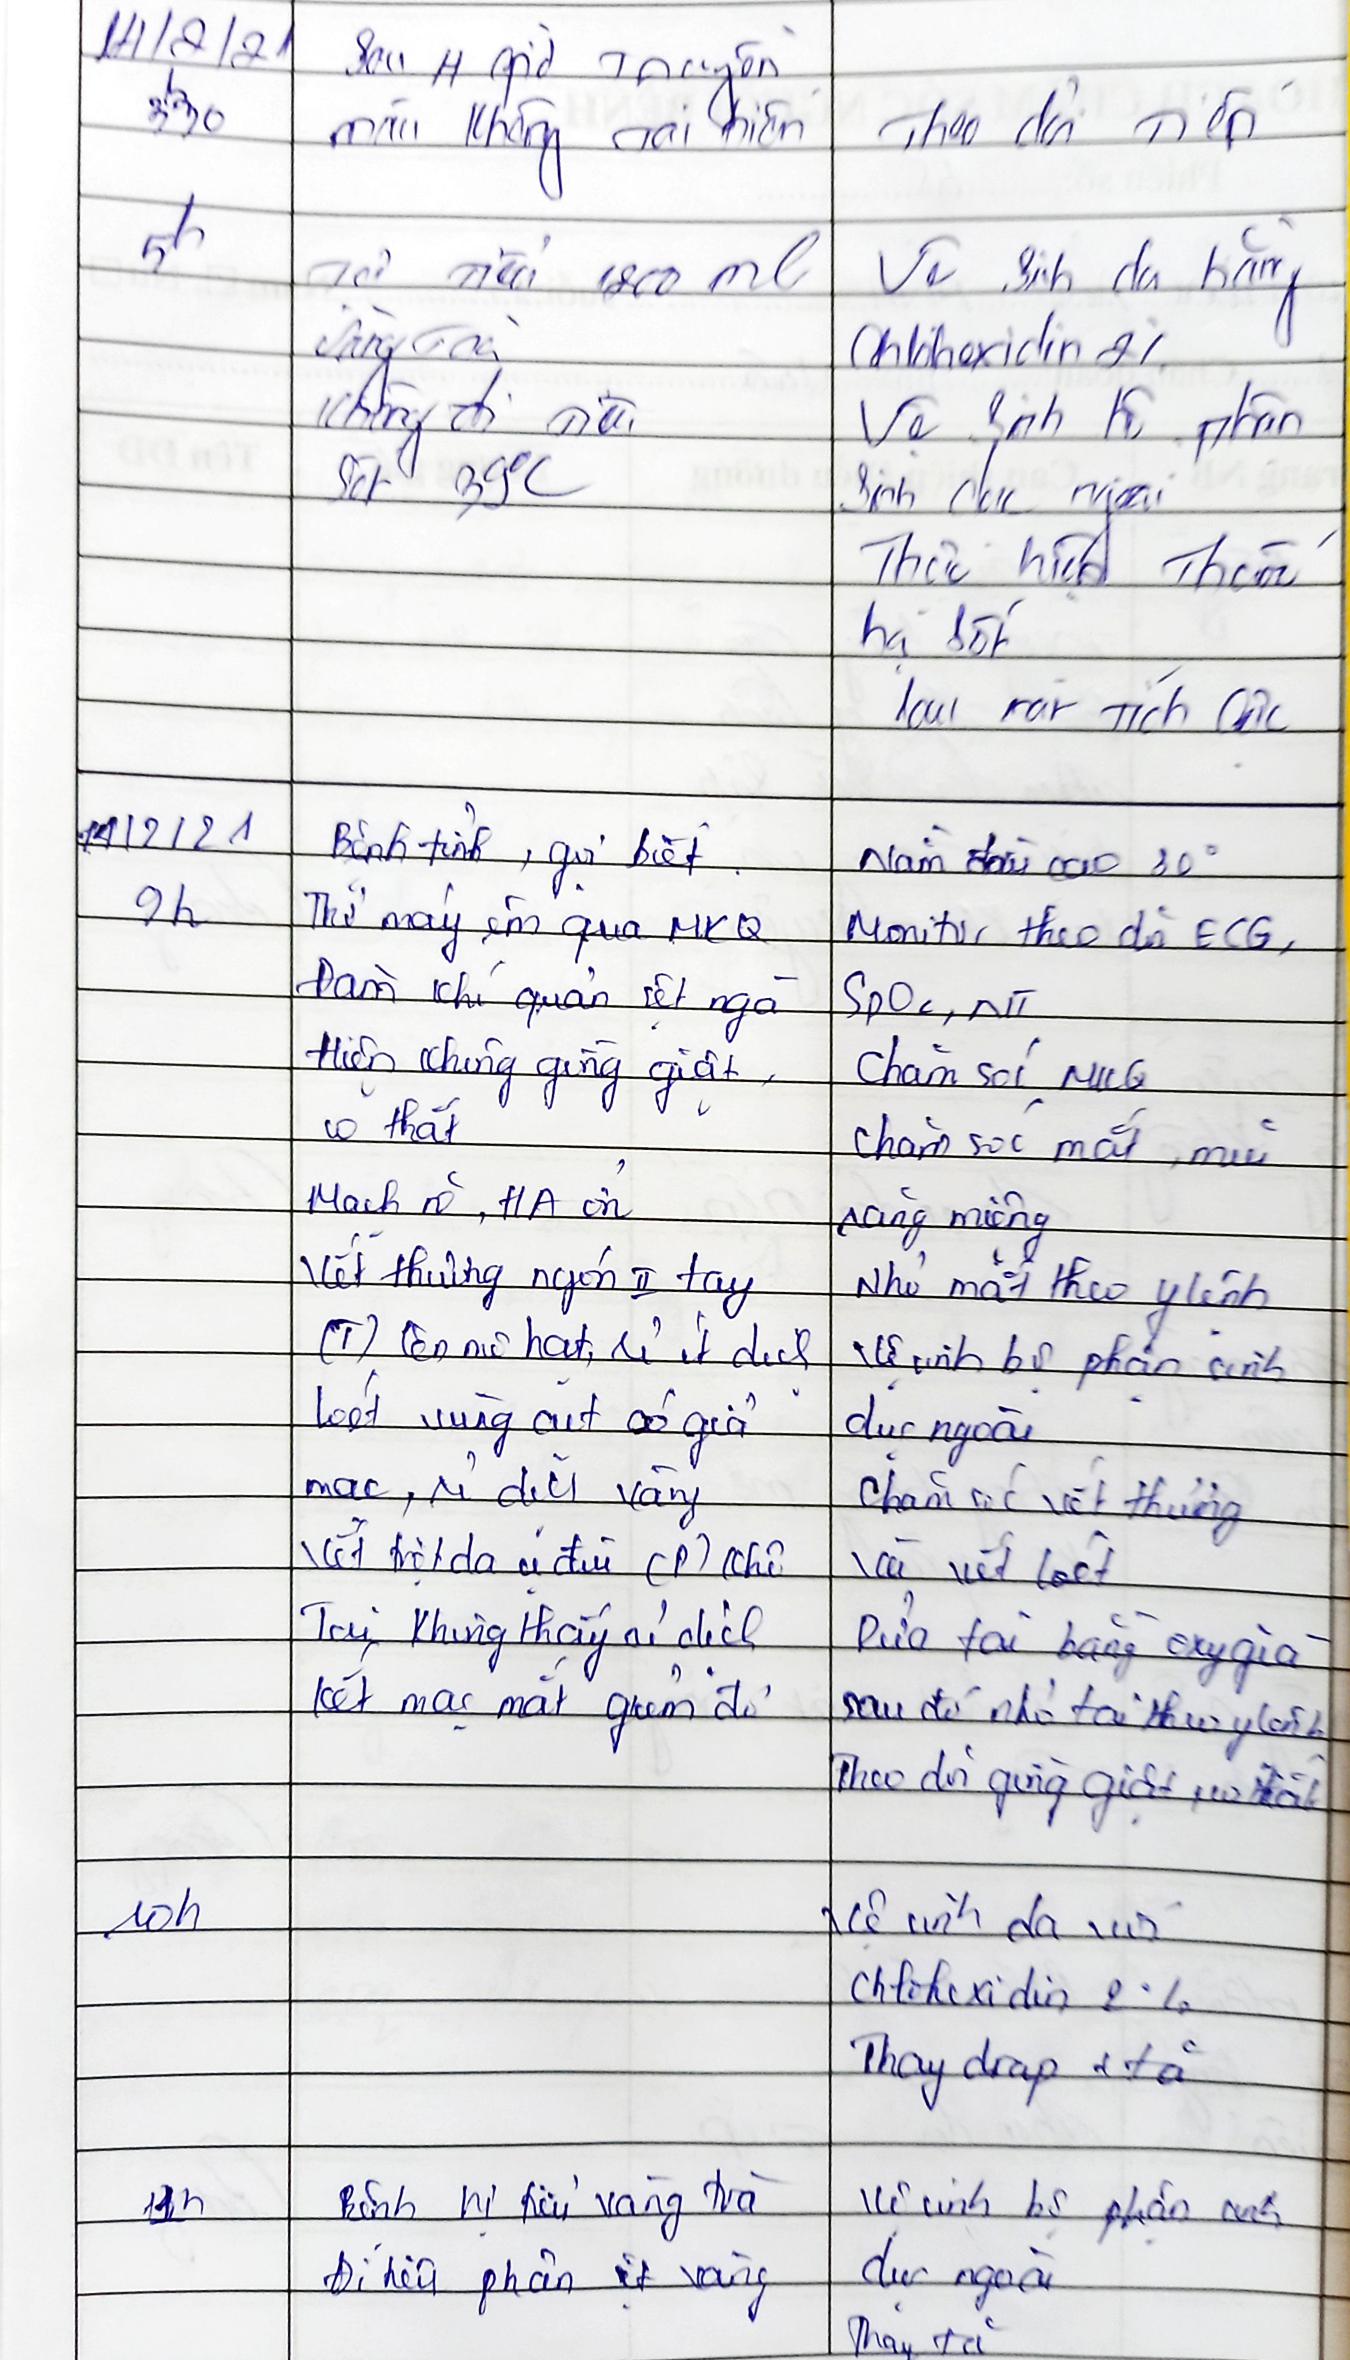 14/2/21
3h30
Sau 4 giờ truyền
máu không tai biến
Theo dõi tiếp
5h
tiểu 1800 ml
vàng trà
không đi tiêu
Sốt 39°C
Vệ sinh da bằng
Chlohexidin 2%
Vệ sinh bộ phận
sinh dục ngoài
Thực hiện thuốc
hạ sốt
lau mát tích cực
14/2/21
9h
Bệnh tỉnh, gọi biết.
Thở máy êm qua MKQ
Đàm khí quản sệt ngà
Hiện không gồng giật,
co thắt
Mạch rõ, HA ổn
Vết thương ngón II tay
(T) lên mô hạt, rỉ ít dịch
loét vùng cụt có giả
mạc, rỉ dịch vàng
Vết trợt da ở đùi (P) khô
Tai không thấy rỉ dịch
kết mạc mắt giảm đỏ
Nằm đầu cao 30°
Monitor theo dõi ECG,
SpO2, NT
Chăm sóc MKQ
chăm sóc mắt, mũi
răng miệng
Nhỏ mắt theo y lệnh
Vệ sinh bộ phận sinh
dục ngoài
Chăm sóc vết thương
và vết loét
Rửa tai bằng oxy già
sau đó nhỏ tai theo y lệnh
Theo dõi gồng giật, co thắt
10h
Vệ sinh da với
Chlohexidin 2%
Thay drap + tã
11h
Bệnh tự tiểu vàng trà
Đi tiêu phân ít vàng
Vệ sinh bộ phận sinh
dục ngoài
Thay tã